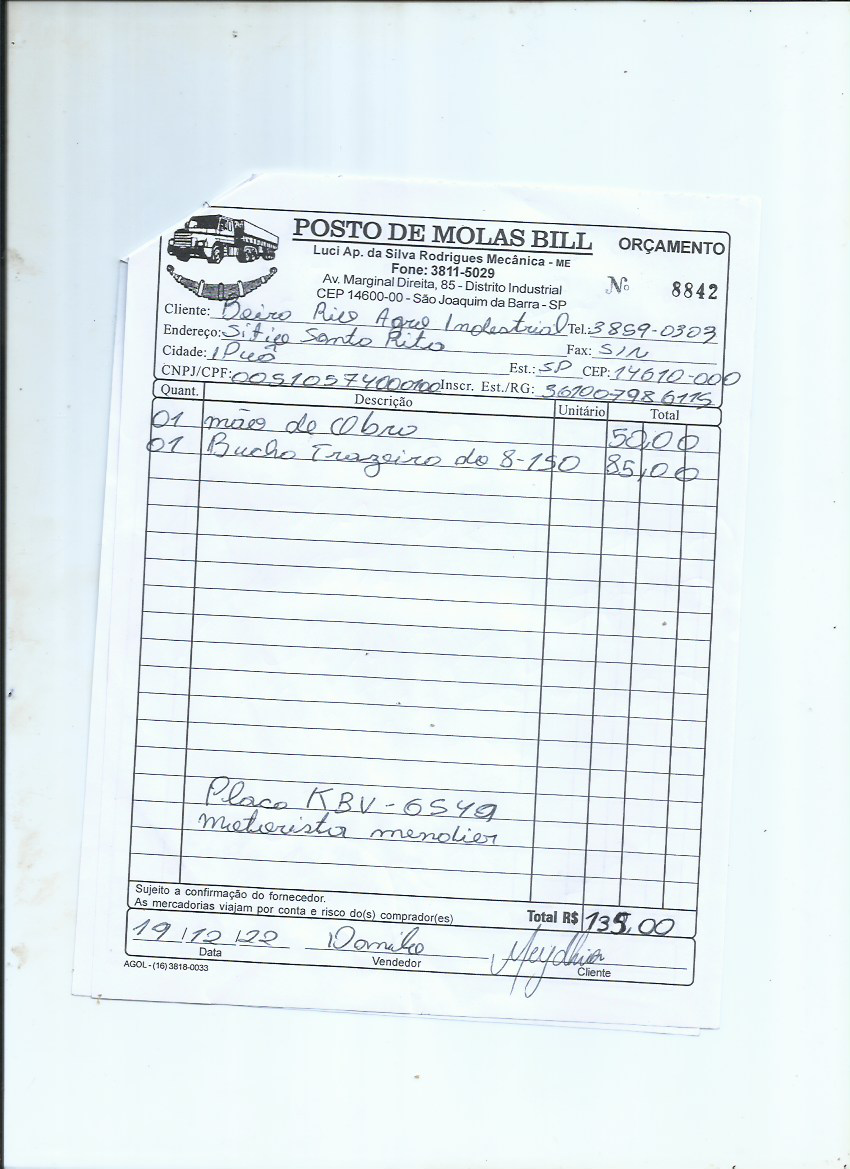 POSTO DE MOLAS BILL
ORÇAMENTO
Luci Ap. da Silva Rodrigues Mecânica - ME
Fone: 3811-5029
Av. Marginal Direita, 85 - Distrito Industrial
CEP 14600-00 - São Joaquim da Barra - SP
Nº 8842
Cliente: Beira Rio Agro Indestrial Tel.: 3859-0303
Endereço: Sítio Santa Rita Fax: S/N
Cidade: Ipuã Est.: SP CEP: 14610-000
CNPJ/CPF: 00510574000100 Inscr. Est./RG: 361007986115
Quant. Descrição Unitário Total
01 mão de Obra 50,00
01 Bucha Trazeira do 8-150 85,00
Placa KBV-6549
Motorista mendier
Sujeito a confirmação do fornecedor.
As mercadorias viajam por conta e risco do(s) comprador(es)
Total R$ 135,00
19/12/22 Danilo
Data Vendedor Cliente
AGOL - (16) 3818-0033